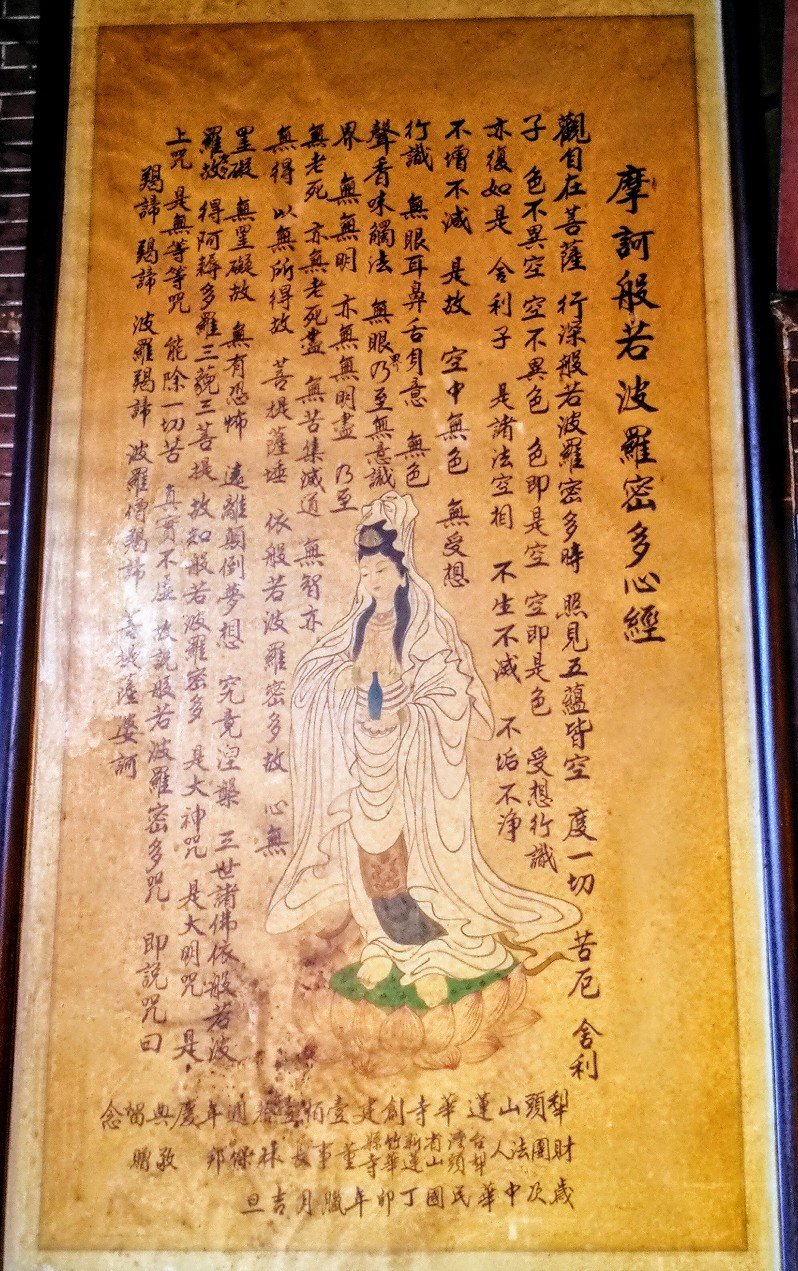 摩訶般若波羅密多心經
觀自在菩薩 行深般若波羅密多時 照見五蘊皆空 度一切 苦厄 舍利
子 色不異空 空不異色 色即是空 空即是色 受想行識
亦復如是 舍利子 是諸法空相 不生不滅 不垢不淨
不增不減 是故 空中無色 無受想
行識 無眼耳鼻舌身意 無色
聲香味觸法 無眼界乃至無意識
界 無無明 亦無無明盡 乃至
無老死 亦無老死盡 無苦集滅道 無智亦
無得 以無所得故 菩提薩埵 依般若波羅密多故 心無
罣礙 無罣礙故 無有恐怖 遠離顛倒夢想 究竟涅槃 三世諸佛依般若波
羅故 得阿耨多羅三藐三菩提 故知般若波羅密多 是大神咒 是大明咒 是
上咒 是無等等咒 能除一切苦 真實不虛 故說般若波羅密多咒 即說咒曰
羯諦 羯諦 波羅羯諦 波羅僧羯諦 菩提薩婆訶
犁頭山蓮華寺創建壹佰 週年慶典留念
財團法人 台灣省新竹縣犁頭山蓮華寺 董事長林傑邦 敬贈
歲次中華民國丁卯年臘月吉旦